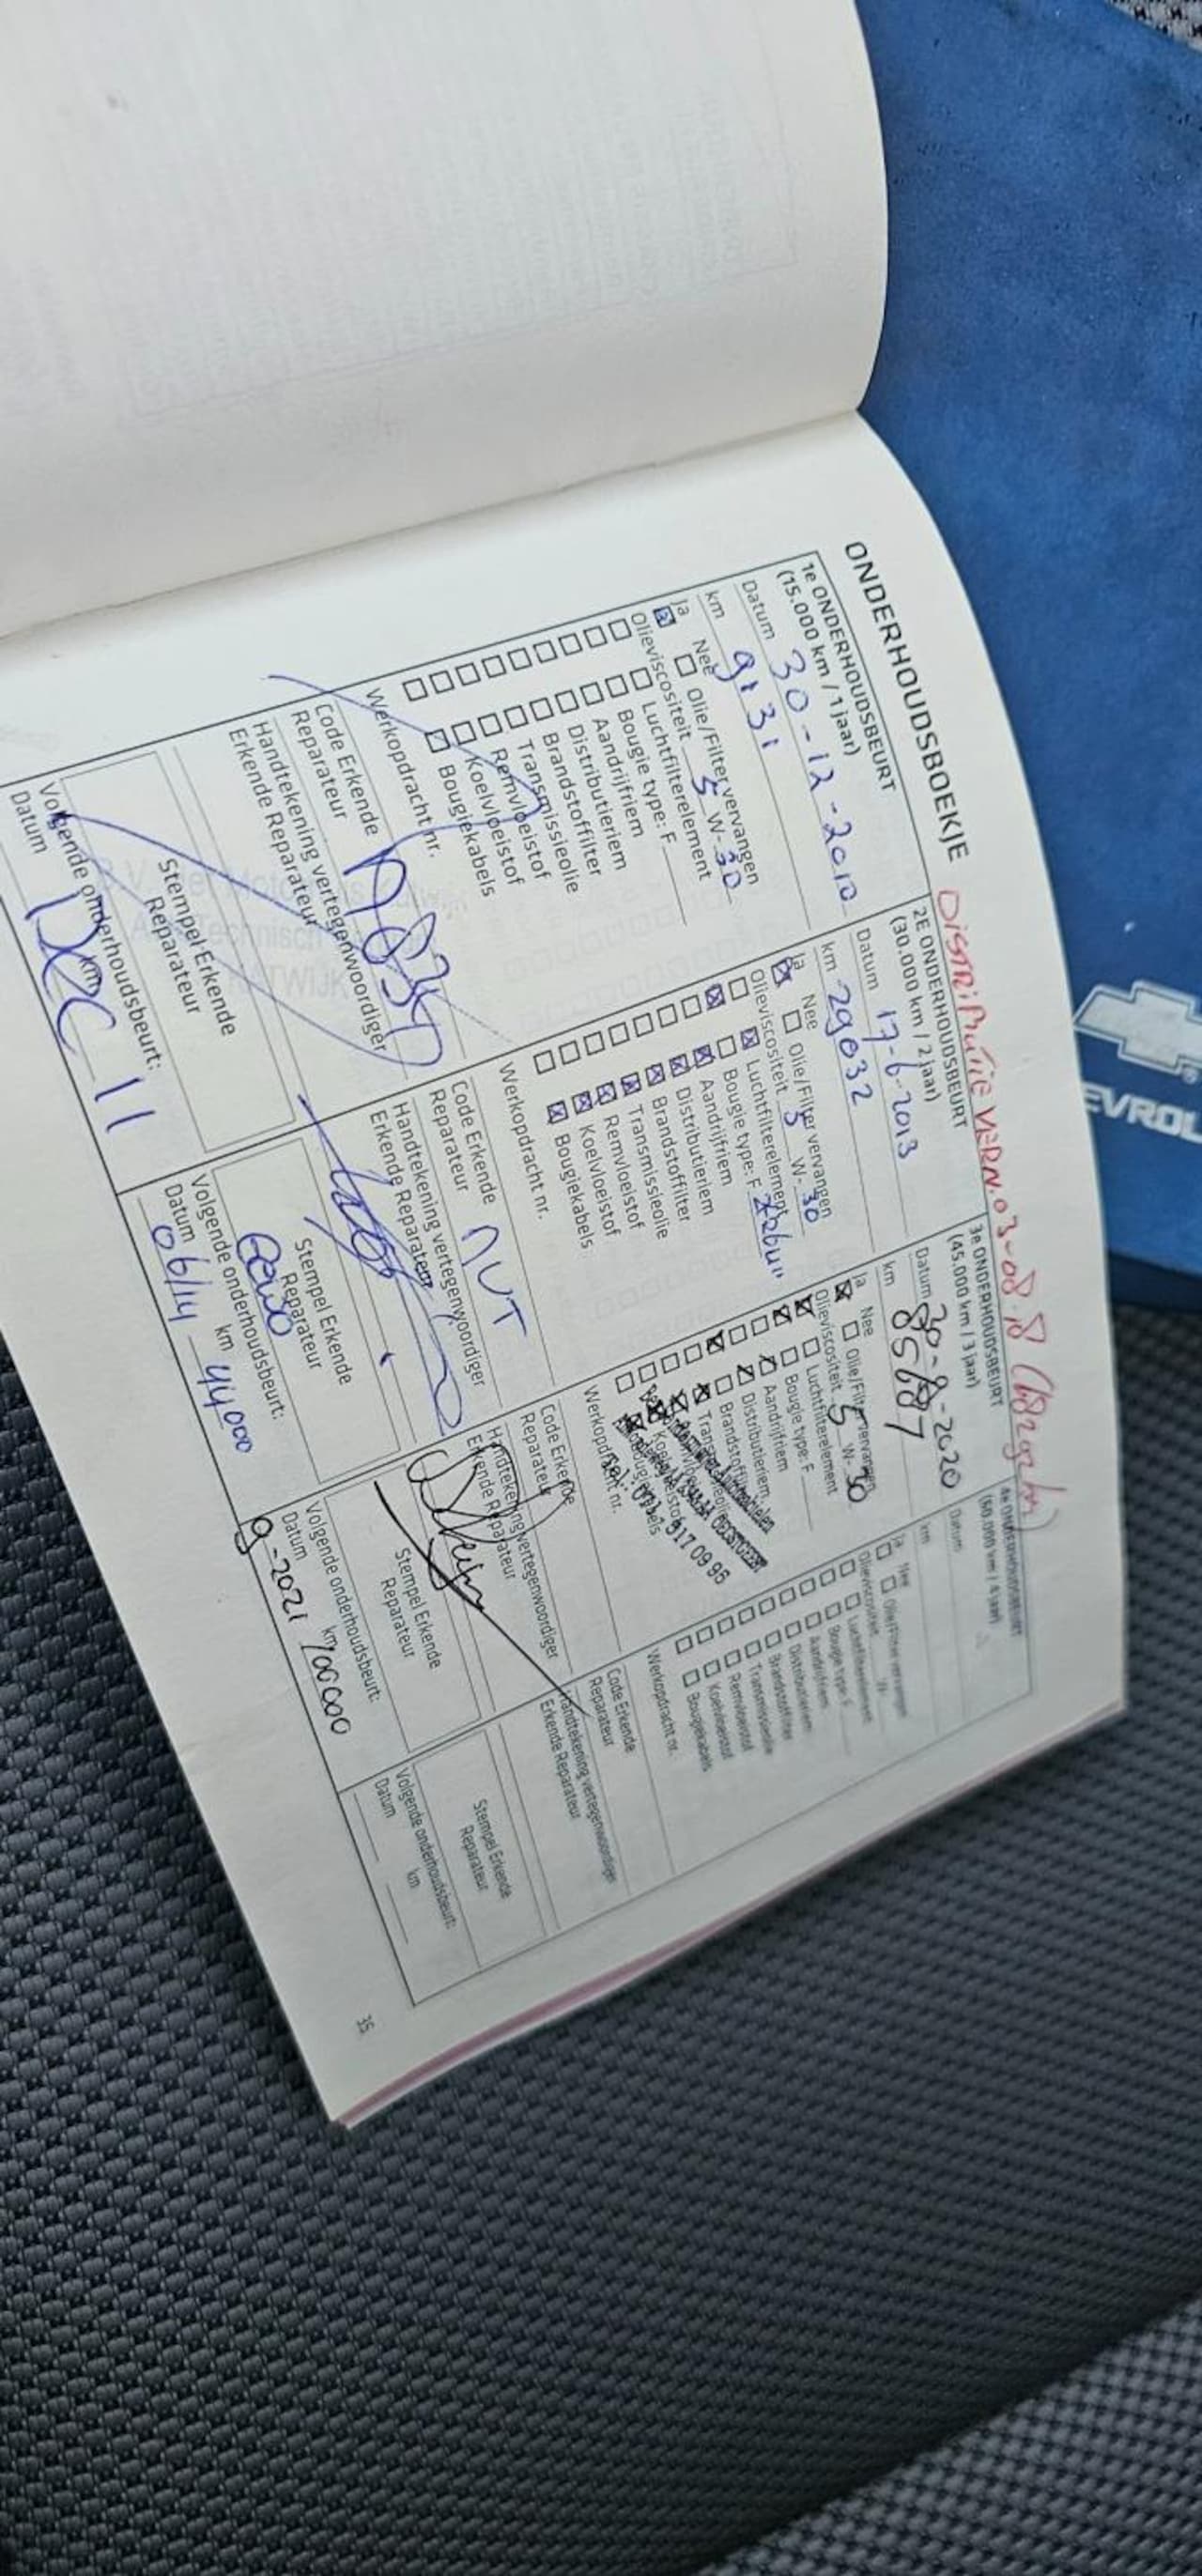 ONDERHOUDSBOEKJE
DISTRIBUTIE VERN. 03-08-18
1e ONDERHOUDSBEURT
(15.000 km / 1 jaar)
Datum 30-12-2010
km 9131
Ja Nee Olie/Filter vervangen
Olieviscositeit 5 W-30
Luchtfilterelement
Bougie type: F
Aandrijfriem
Distributieriem
Brandstoffilter
Transmissieolie
Remvloeistof
Koelvloeistof
Bougiekabels
Werkopdracht nr.
Code Erkende
Reparateur
Handtekening vertegenwoordiger
Erkende Reparateur
Stempel Erkende
Reparateur
Volgende onderhoudsbeurt:
Datum km
DEC 11
2E ONDERHOUDSBEURT
(30.000 km / 2 jaar)
Datum 17-6-2013
km 29032
Ja Nee Olie/Filter vervangen
Olieviscositeit 5 W-30
Luchtfilterelement
Bougie type: F
Aandrijfriem
Distributieriem
Brandstoffilter
Transmissieolie
Remvloeistof
Koelvloeistof
Bougiekabels
Werkopdracht nr.
Code Erkende
Reparateur
Handtekening vertegenwoordiger
Erkende Reparateur
Stempel Erkende
Reparateur
Volgende onderhoudsbeurt:
Datum 06/14 km 44000
3e ONDERHOUDSBEURT
(45.000 km / 3 jaar)
Datum -2020
km 85687
Ja Nee Olie/Filter vervangen
Olieviscositeit 5 W-30
Luchtfilterelement
Bougie type: F
Aandrijfriem
Distributieriem
Brandstoffilter
Werkopdracht nr.
Code Erkende
Reparateur
Handtekening vertegenwoordiger
Erkende Reparateur
Stempel Erkende
Reparateur
Volgende onderhoudsbeurt:
Datum km
9-2021 100000
4e ONDERHOUDSBEURT
(60.000 km / 4 jaar)
Datum
km
Ja Nee Olie/Filter vervangen
Olieviscositeit W-
Luchtfilterelement
Bougie type: F
Aandrijfriem
Distributieriem
Brandstoffilter
Transmissieolie
Remvloeistof
Koelvloeistof
Bougiekabels
Werkopdracht nr.
Code Erkende
Reparateur
Handtekening vertegenwoordiger
Erkende Reparateur
Stempel Erkende
Reparateur
Volgende onderhoudsbeurt:
Datum km
35
EVROL